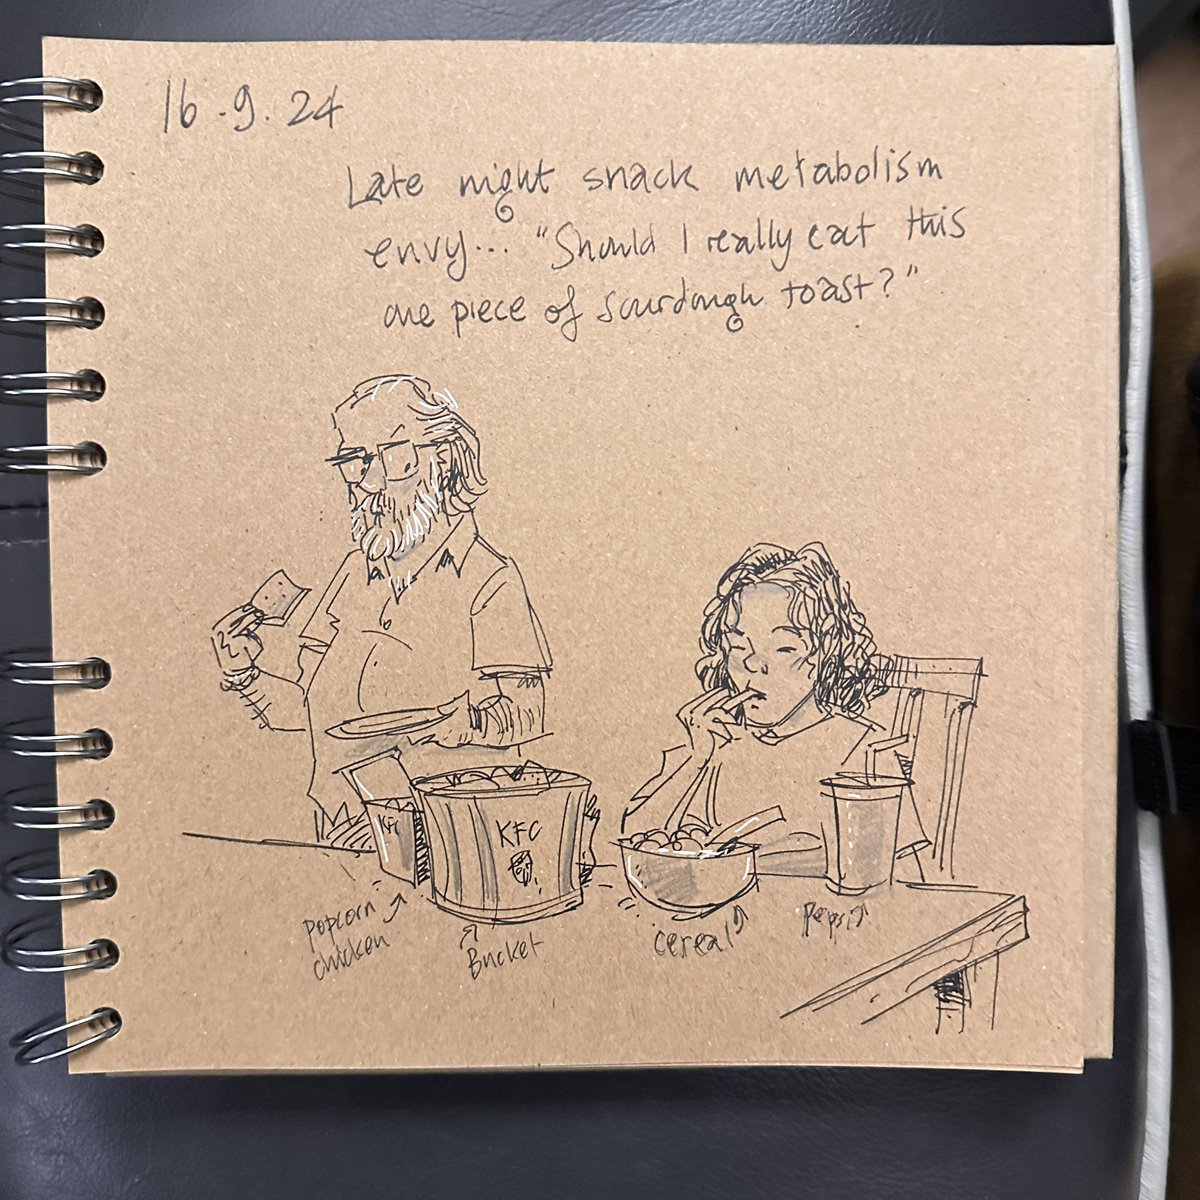 16.9.24
Late night snack metabolism
envy... "Should I really eat this
one piece of sourdough toast?"
KFC
KFC
popcorn
chicken
Bucket
cereal
Pepsi